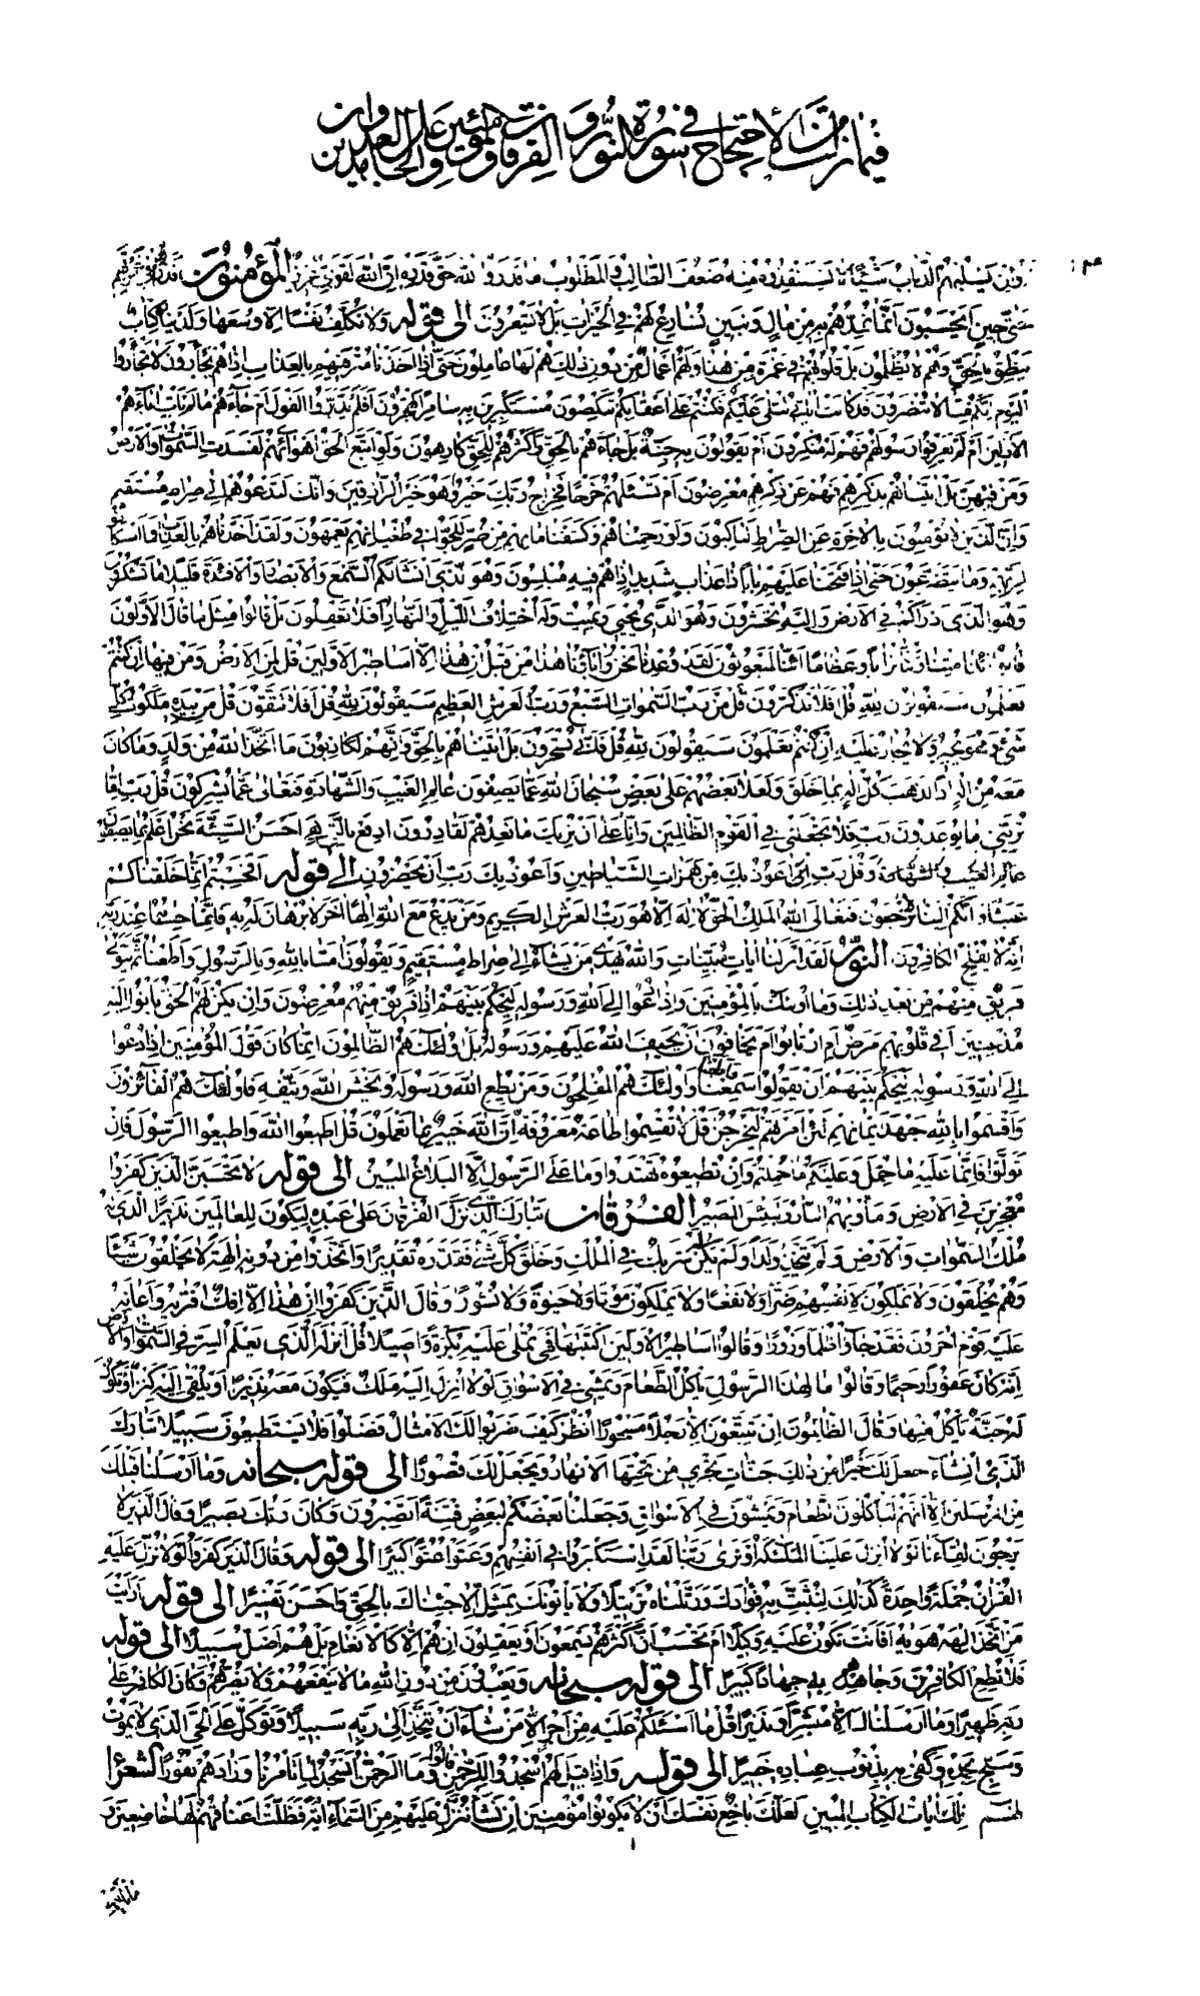 فيما نزلت من الاحتجاج في سورة النور و الفرقان والمؤمنين على العدوان والجاحدين
وان يسلبهم الذباب شيئا لا يستنقذوه منه ضعف الطالب والمطلوب ما قدروا الله حق قدره ان الله لقوي عزيز المؤمنون فذرهم في غمرتهم
حتى حين ايحسبون انما نمدهم به من مال وبنين نسارع لهم في الخيرات بل لا يشعرون الى قوله ولا نكلف نفسا الا وسعها ولدينا كتاب
ينطق بالحق وهم لا يظلمون بل قلوبهم في غمرة من هذا ولهم اعمال من دون ذلك هم لها عاملون حتى اذا اخذنا مترفيهم بالعذاب اذا هم يجأرون لا تجأروا
اليوم انكم منا لا تنصرون قد كانت اياتي تتلى عليكم فكنتم على اعقابكم تنكصون مستكبرين به سامرا تهجرون افلم يدبروا القول ام جاءهم ما لم يأت اباءهم
الاولين ام لم يعرفوا رسولهم فهم له منكرون ام يقولون به جنة بل جاءهم بالحق واكثرهم للحق كارهون ولو اتبع الحق اهواءهم لفسدت السموات والارض
ومن فيهن بل اتيناهم بذكرهم فهم عن ذكرهم معرضون ام تسئلهم خرجا فخراج ربك خير وهو خير الرازقين وانك لتدعوهم الى صراط مستقيم
وان الذين لا يؤمنون بالاخرة عن الصراط لناكبون ولو رحمناهم وكشفنا ما بهم من ضر للجوا في طغيانهم يعمهون ولقد اخذناهم بالعذاب فما استكانوا
لربهم وما يتضرعون حتى اذا فتحنا عليهم بابا ذا عذاب شديد اذا هم فيه مبلسون وهو الذي انشأ لكم السمع والابصار والافئدة قليلا ما تشكرون
وهو الذي ذرأكم في الارض واليه تحشرون وهو الذي يحيي ويميت وله اختلاف الليل والنهار افلا تعقلون بل قالوا مثل ما قال الاولون
قالوا ائذا متنا وكنا ترابا وعظاما ائنا لمبعوثون لقد وعدنا نحن واباؤنا هذا من قبل ان هذا الا اساطير الاولين قل لمن الارض ومن فيها ان كنتم
تعلمون سيقولون لله قل افلا تذكرون قل من رب السموات السبع ورب العرش العظيم سيقولون لله قل افلا تتقون قل من بيده ملكوت كل
شيء وهو يجير ولا يجار عليه ان كنتم تعلمون سيقولون لله قل فانى تسحرون بل اتيناهم بالحق وانهم لكاذبون ما اتخذ الله من ولد وما كان
معه من اله اذا لذهب كل اله بما خلق ولعلا بعضهم على بعض سبحان الله عما يصفون عالم الغيب والشهادة فتعالى عما يشركون قل رب اما
تريني ما يوعدون رب فلا تجعلني في القوم الظالمين وانا على ان نريك ما نعدهم لقادرون ادفع بالتي هي احسن السيئة نحن اعلم بما يصفون
عالم الغيب والشهادة وقل رب اني اعوذ بك من همزات الشياطين واعوذ بك رب ان يحضرون الى قوله افحسبتم انما خلقناكم
عبثا وانكم الينا لا ترجعون فتعالى الله الملك الحق لا اله الا هو رب العرش الكريم ومن يدع مع الله الها اخر لا برهان له به فانما حسابه عند ربه
انه لا يفلح الكافرون النور لقد انزلنا ايات مبينات والله يهدي من يشاء الى صراط مستقيم ويقولون امنا بالله وبالرسول واطعنا ثم يتولى
فريق منهم من بعد ذلك وما اولئك بالمؤمنين واذا دعوا الى الله ورسوله ليحكم بينهم اذا فريق منهم معرضون وان يكن لهم الحق يأتوا اليه
مذعنين افي قلوبهم مرض ام ارتابوا ام يخافون ان يحيف الله عليهم ورسوله بل اولئك هم الظالمون انما كان قول المؤمنين اذا دعوا
الى الله ورسوله ليحكم بينهم ان يقولوا سمعنا واطعنا واولئك هم المفلحون ومن يطع الله ورسوله ويخش الله ويتقه فاولئك هم الفائزون
واقسموا بالله جهد ايمانهم لئن امرتهم ليخرجن قل لا تقسموا طاعة معروفة ان الله خبير بما تعملون قل اطيعوا الله واطيعوا الرسول فان
تولوا فانما عليه ما حمل وعليكم ما حملتم وان تطيعوه تهتدوا وما على الرسول الا البلاغ المبين الى قوله لا تحسبن الذين كفروا
معجزين في الارض ومأويهم النار ولبئس المصير الفرقان تبارك الذي نزل الفرقان على عبده ليكون للعالمين نذيرا الذي له
ملك السموات والارض ولم يتخذ ولدا ولم يكن له شريك في الملك وخلق كل شيء فقدره تقديرا واتخذوا من دونه الهة لا يخلقون شيئا
وهم يخلقون ولا يملكون لانفسهم ضرا ولا نفعا ولا يملكون موتا ولا حيوة ولا نشورا وقال الذين كفروا ان هذا الا افك افتريه واعانه
عليه قوم اخرون فقد جاؤا ظلما وزورا وقالوا اساطير الاولين اكتتبها فهي تملى عليه بكرة واصيلا قل انزله الذي يعلم السر في السموات والارض
انه كان غفورا رحيما وقالوا ما لهذا الرسول يأكل الطعام ويمشي في الاسواق لولا انزل اليه ملك فيكون معه نذيرا او يلقى اليه كنز او تكون
له جنة يأكل منها وقال الظالمون ان تتبعون الا رجلا مسحورا انظر كيف ضربوا لك الامثال فضلوا فلا يستطيعون سبيلا تبارك
الذي ان شاء جعل لك خيرا من ذلك جنات تجري من تحتها الانهار ويجعل لك قصورا الى قوله سبحانه وما ارسلنا قبلك
من المرسلين الا انهم ليأكلون الطعام ويمشون في الاسواق وجعلنا بعضكم لبعض فتنة اتصبرون وكان ربك بصيرا وقال الذين لا
يرجون لقاءنا لولا انزل علينا الملئكة او نرى ربنا لقد استكبروا في انفسهم وعتوا عتوا كبيرا الى قوله وقال الذين كفروا لولا نزل عليه
القران جملة واحدة كذلك لنثبت به فؤادك ورتلناه ترتيلا ولا يأتونك بمثل الا جئناك بالحق واحسن تفسيرا الى قوله ارايت
من اتخذ الهه هويه افانت تكون عليه وكيلا ام تحسب ان اكثرهم يسمعون او يعقلون ان هم الا كالانعام بل هم اضل سبيلا الى قوله
فلا تطع الكافرين وجاهدهم به جهادا كبيرا الى قوله سبحانه ويعبدون من دون الله ما لا ينفعهم ولا يضرهم وكان الكافر على
ربه ظهيرا وما ارسلناك الا مبشرا ونذيرا قل ما اسئلكم عليه من اجر الا من شاء ان يتخذ الى ربه سبيلا وتوكل على الحي الذي لا يموت
وسبح بحمده وكفى به بذنوب عباده خبيرا الى قوله واذا قيل لهم اسجدوا للرحمن قالوا وما الرحمن انسجد لما تأمرنا وزادهم نفورا الشعراء
طسم تلك ايات الكتاب المبين لعلك باخع نفسك ان لا يكونوا مؤمنين ان نشأ ننزل عليهم من السماء اية فظلت اعناقهم لها خاضعين و